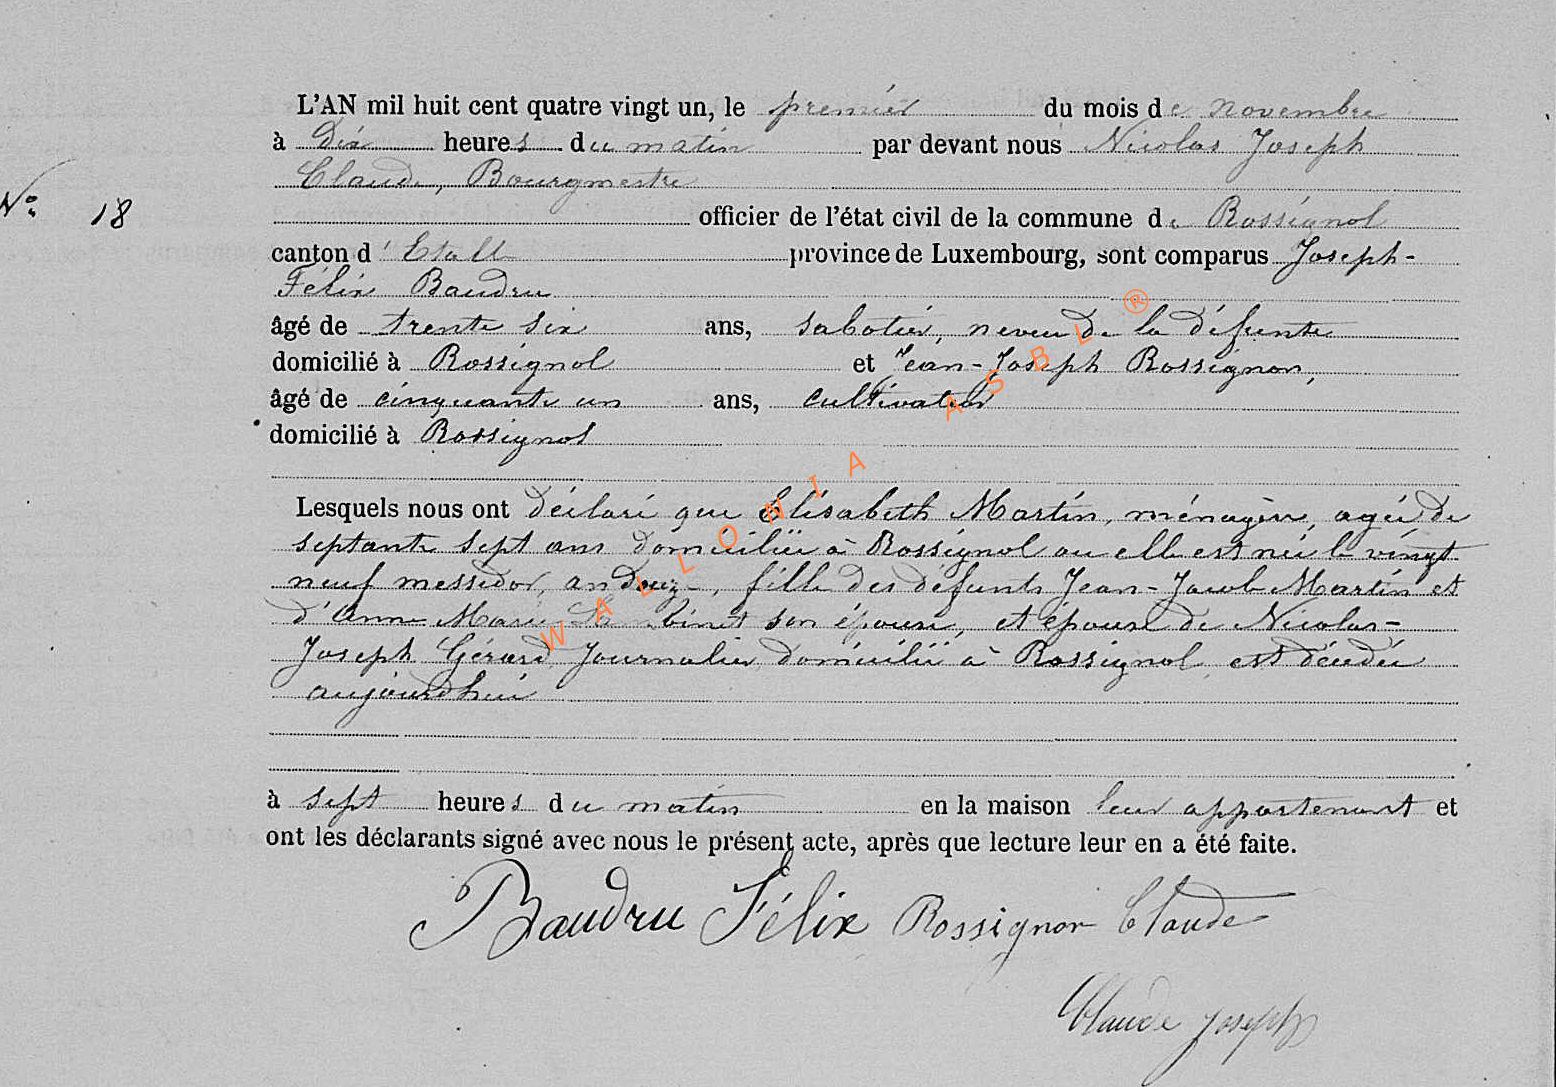 L'AN mil huit cent quatre vingt un, le premier du mois de novembre
à dix heures du matin par devant nous Nicolas Joseph
Claude, Bourgmestre
N° 18
officier de l'état civil de la commune de Rossignol
canton d'Etalle province de Luxembourg, sont comparus Joseph-
Félix Baudru
âgé de trente six ans, sabotier, neveu de la défunte
domicilié à Rossignol et Jean-Joseph Rossignon,
âgé de cinquante un ans, cultivateur
domicilié à Rossignol
Lesquels nous ont déclaré que Elisabeth Martin, ménagère, agée de
septante sept ans domiciliée à Rossignol ou elle est née le vingt
neuf messidor, an douze, fille des défunts Jean-Jacob Martin et
d'Anne Marie son épouse, et épouse de Nicolas-
Joseph Gérard Journalier domiciliée à Rossignol est décédée
aujourdhui
à sept heures du matin en la maison leur appartenant et
ont les déclarants signé avec nous le présent acte, après que lecture leur en a été faite.
Baudru Félix Rossignon Claude
Claude Joseph
WALLONIA ASBL ®